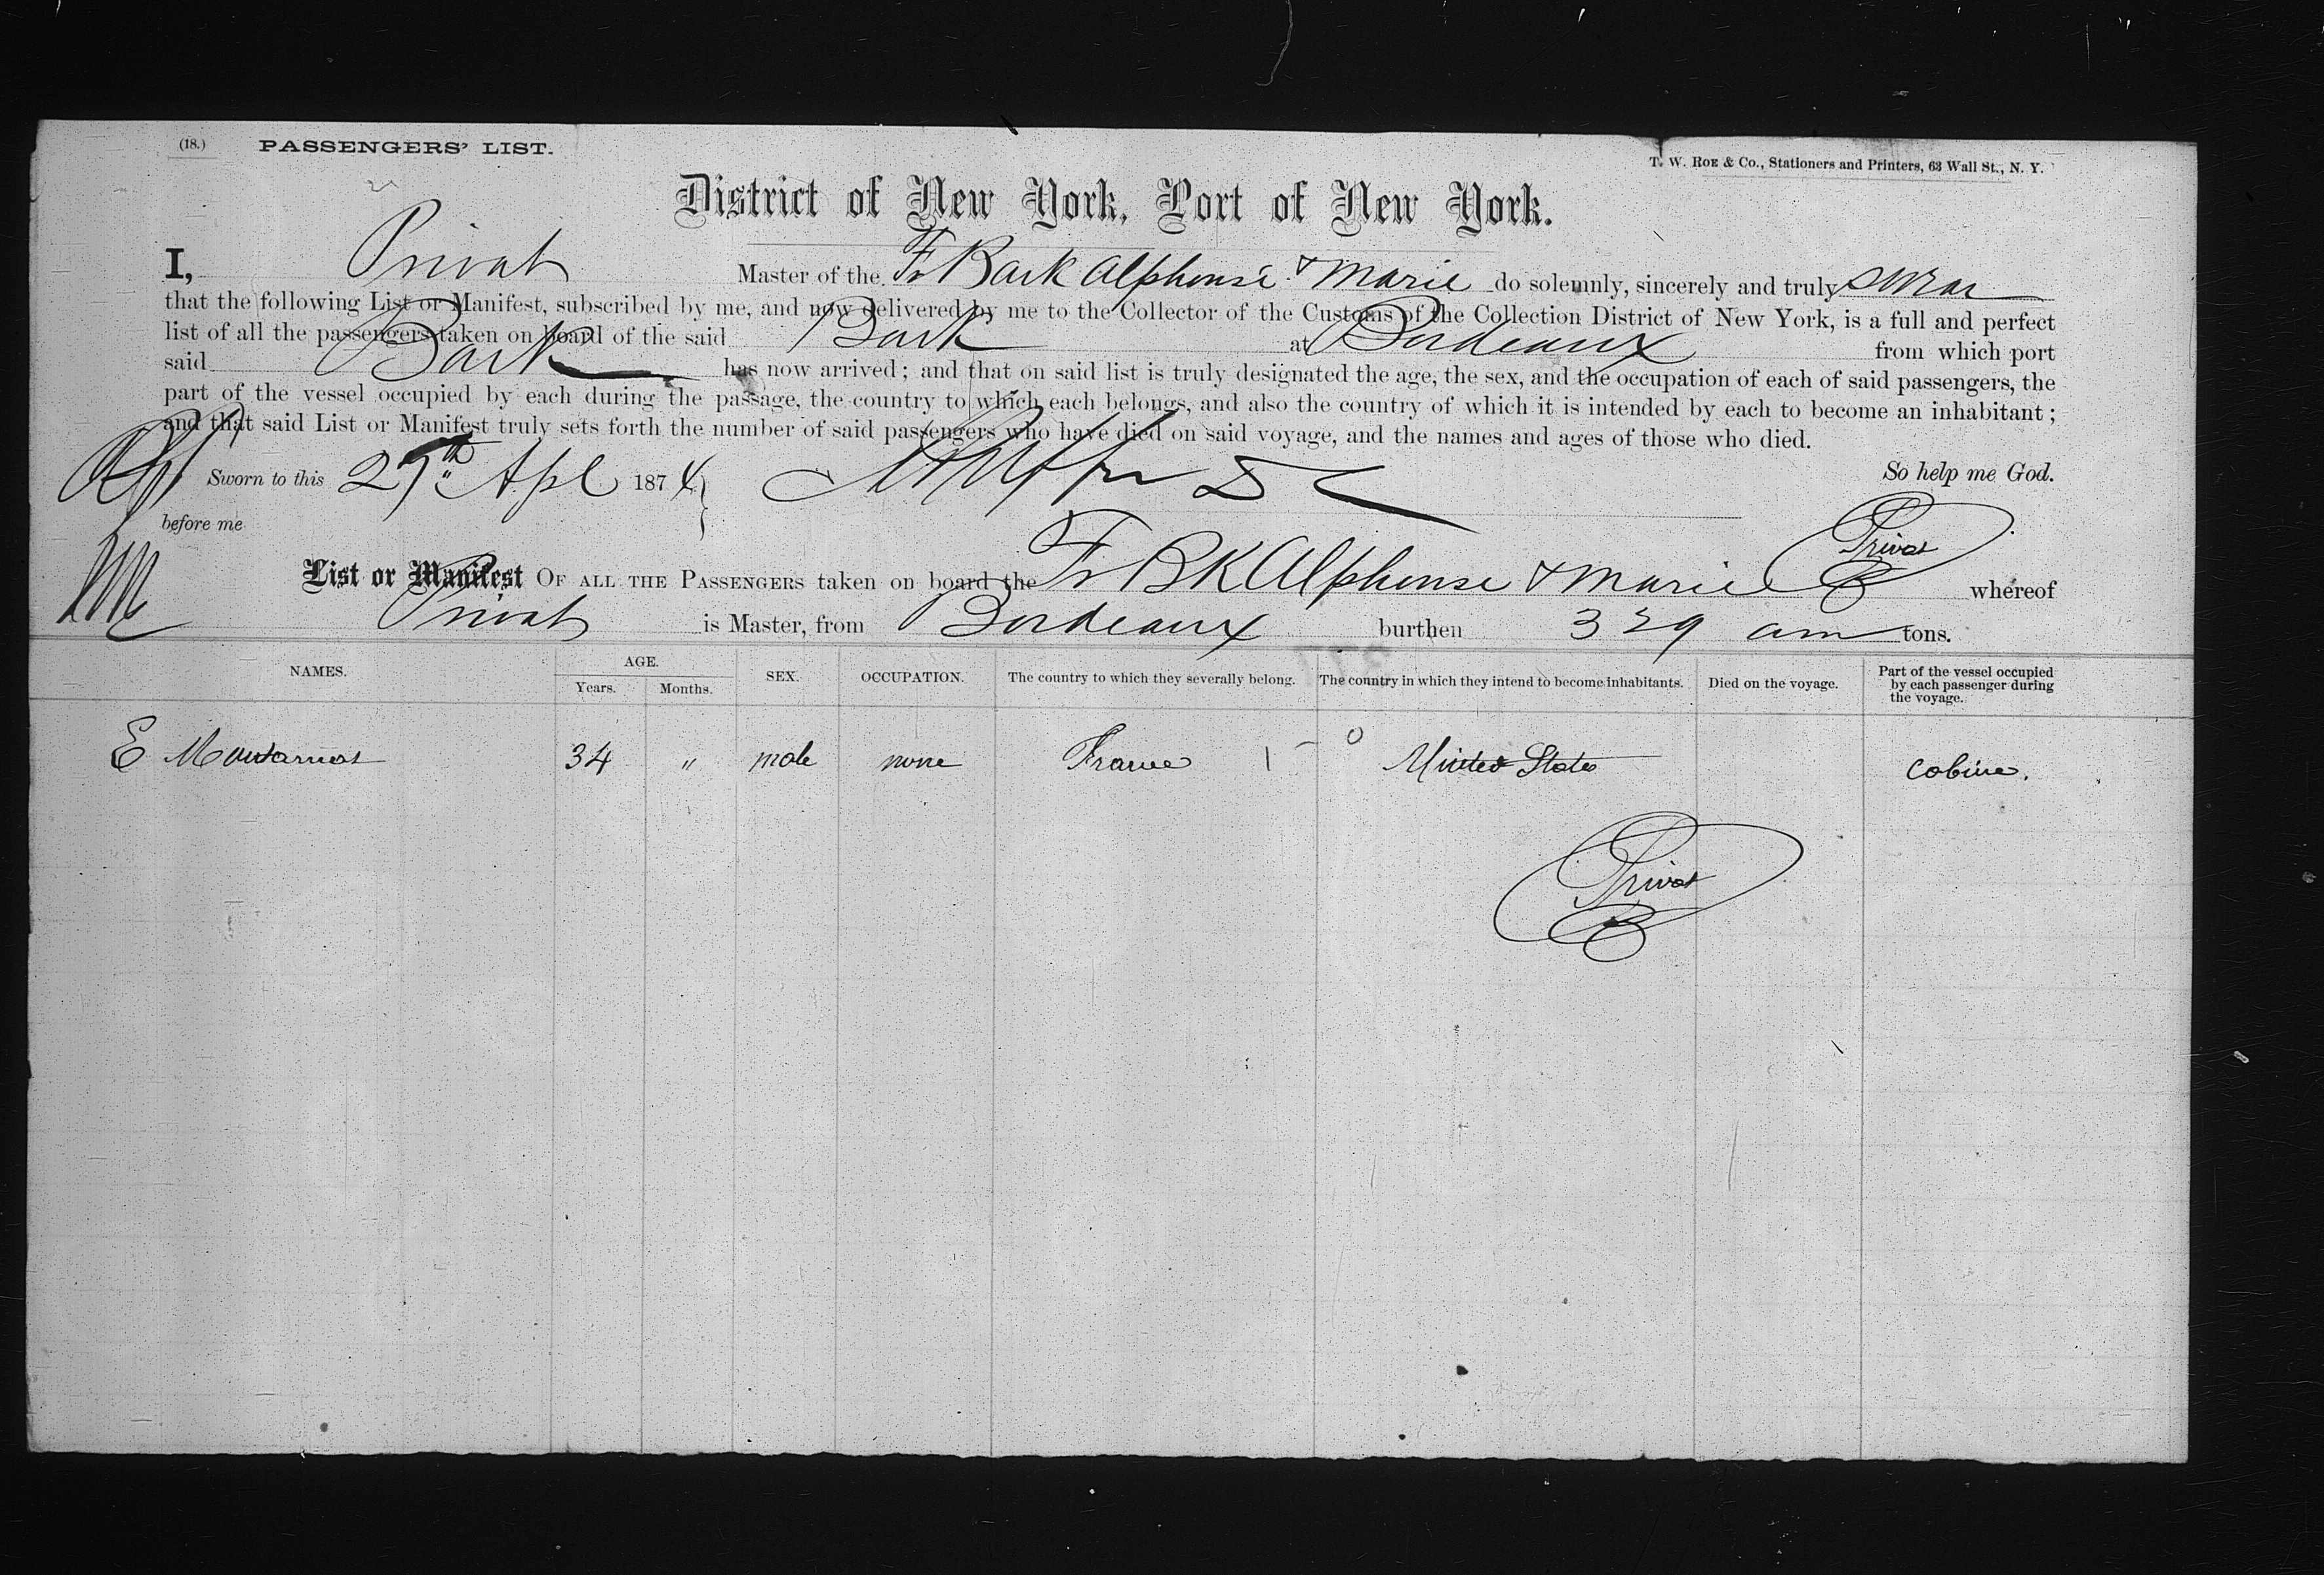 (18.) PASSENGERS' LIST.
T. W. ROE & Co., Stationers and Printers, 63 Wall St., N. Y.
District of New York, Port of New York.
I, Privat Master of the Fr Bark Alphonse & Marie do solemnly, sincerely and truly swear
that the following List or Manifest, subscribed by me, and now delivered by me to the Collector of the Customs of the Collection District of New York, is a full and perfect
list of all the passengers taken on board of the said Bark at Bordeaux from which port
said Bark has now arrived; and that on said list is truly designated the age, the sex, and the occupation of each of said passengers, the
part of the vessel occupied by each during the passage, the country to which each belongs, and also the country of which it is intended by each to become an inhabitant;
and that said List or Manifest truly sets forth the number of said passengers who have died on said voyage, and the names and ages of those who died.
Sworn to this 29th Apl 1874 So help me God.
before me
Privat
List or Manifest OF ALL THE PASSENGERS taken on board the Fr Bk Alphonse & Marie whereof
Privat is Master, from Bordeaux burthen 329 tons.
NAMES. AGE. Years. Months. SEX. OCCUPATION. The country to which they severally belong. The country in which they intend to become inhabitants. Died on the voyage. Part of the vessel occupied by each passenger during the voyage.
E 34 " male none France 1 - 0 United States cabine.
Privat